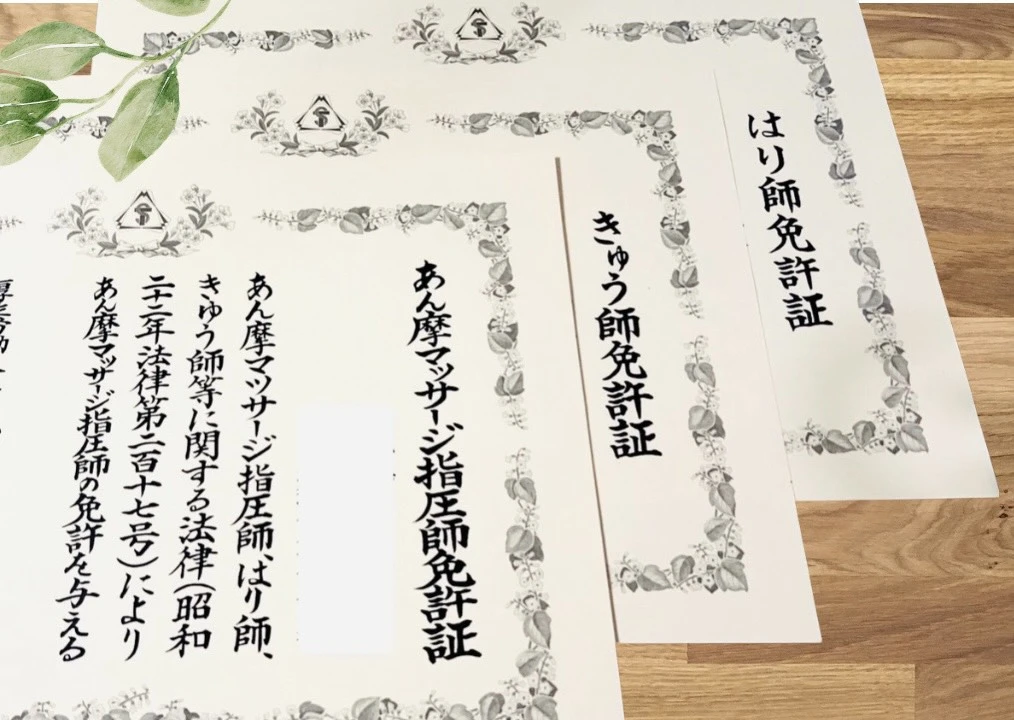 はり師免許証
きゅう師免許証
あん摩マッサージ指圧師免許証
あん摩マツサージ指圧師、はり師、
きゅう師等に関する法律(昭和
二十二年法律第二百十七号)により
あん摩マッサージ指圧師の免許を与える